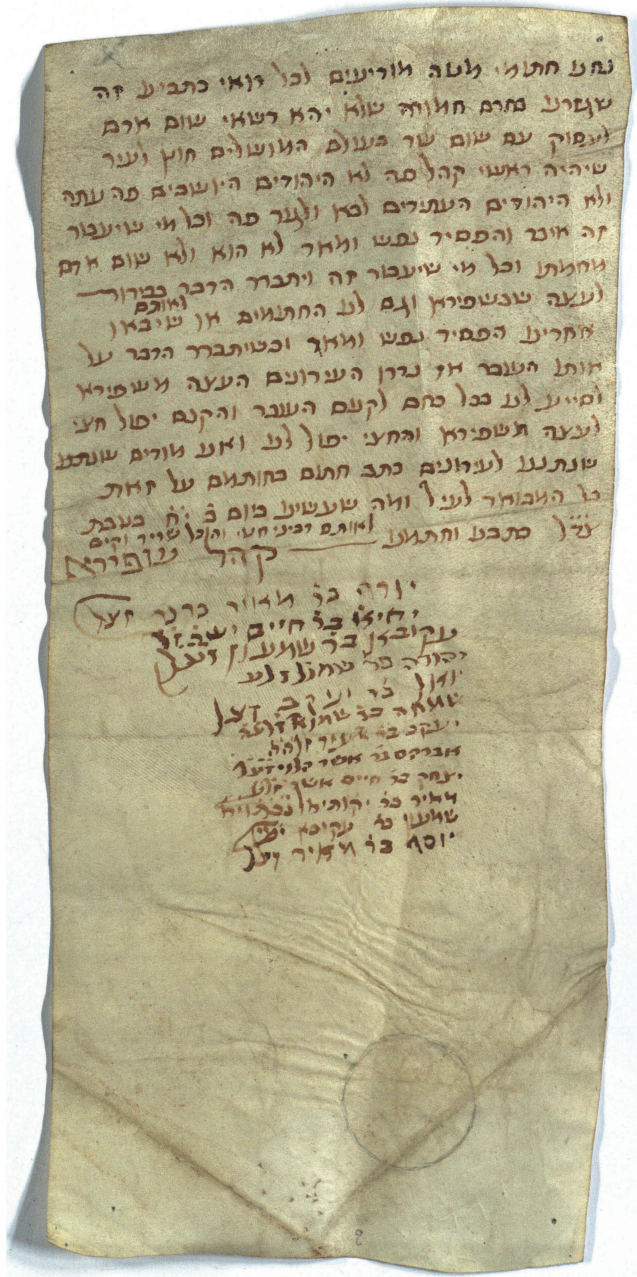 נחנו חתומי מטה מודיעים לכל רואי כתבינו זה
שגזרנו בחרם חמורה שלא יהא רשאי שום אדם
לעסוק עם שום שר בעולם המושלים חוץ לעיר
שיהיה ראשי קהל פה לא היהודים היושבים פה עתה
ולא היהודים העתידים לבא ולגור פה וכל מי שיעבור
זה איבד והפסיד נפש ומאד לא הוא ולא שום אדם
מחמתו וכל מי שיעבור זה ויתברר הדבר בבירור
ואותם
לעצה שבשפירא וגם לנו החתומים או שיבאו
אחרינו הפסיד נפש ומאד וכשיתברר הדבר על
אותו העובר אז נדרו העירונים העצה משפירא
לסייע לנו בכל כחם לקנוס העובר והקנס יפול חצי
לעצה משפירא והחצי יפול לנו ואנו מודים שנתננו
שנתננו לעירונים כתב חתום בחותמם על זאת
כל המבואר לעיל ומה שעשינו ביום ב׳ בשבת
לאותם רבינו חצי והכל שריר וקים
כתבנו וחתמנו קהל שפירא
יודה בר מאיר
יחיאל בר חיים
עקיבא בר שמעון
יהודה בר
בר יעקב
שמחה בר
יעקב בר
אברהם בר אשר הלוי
יצחק בר חיים
מאיר בר יקותיאל
שמעון בר עקיבא
יוסף בר מאיר